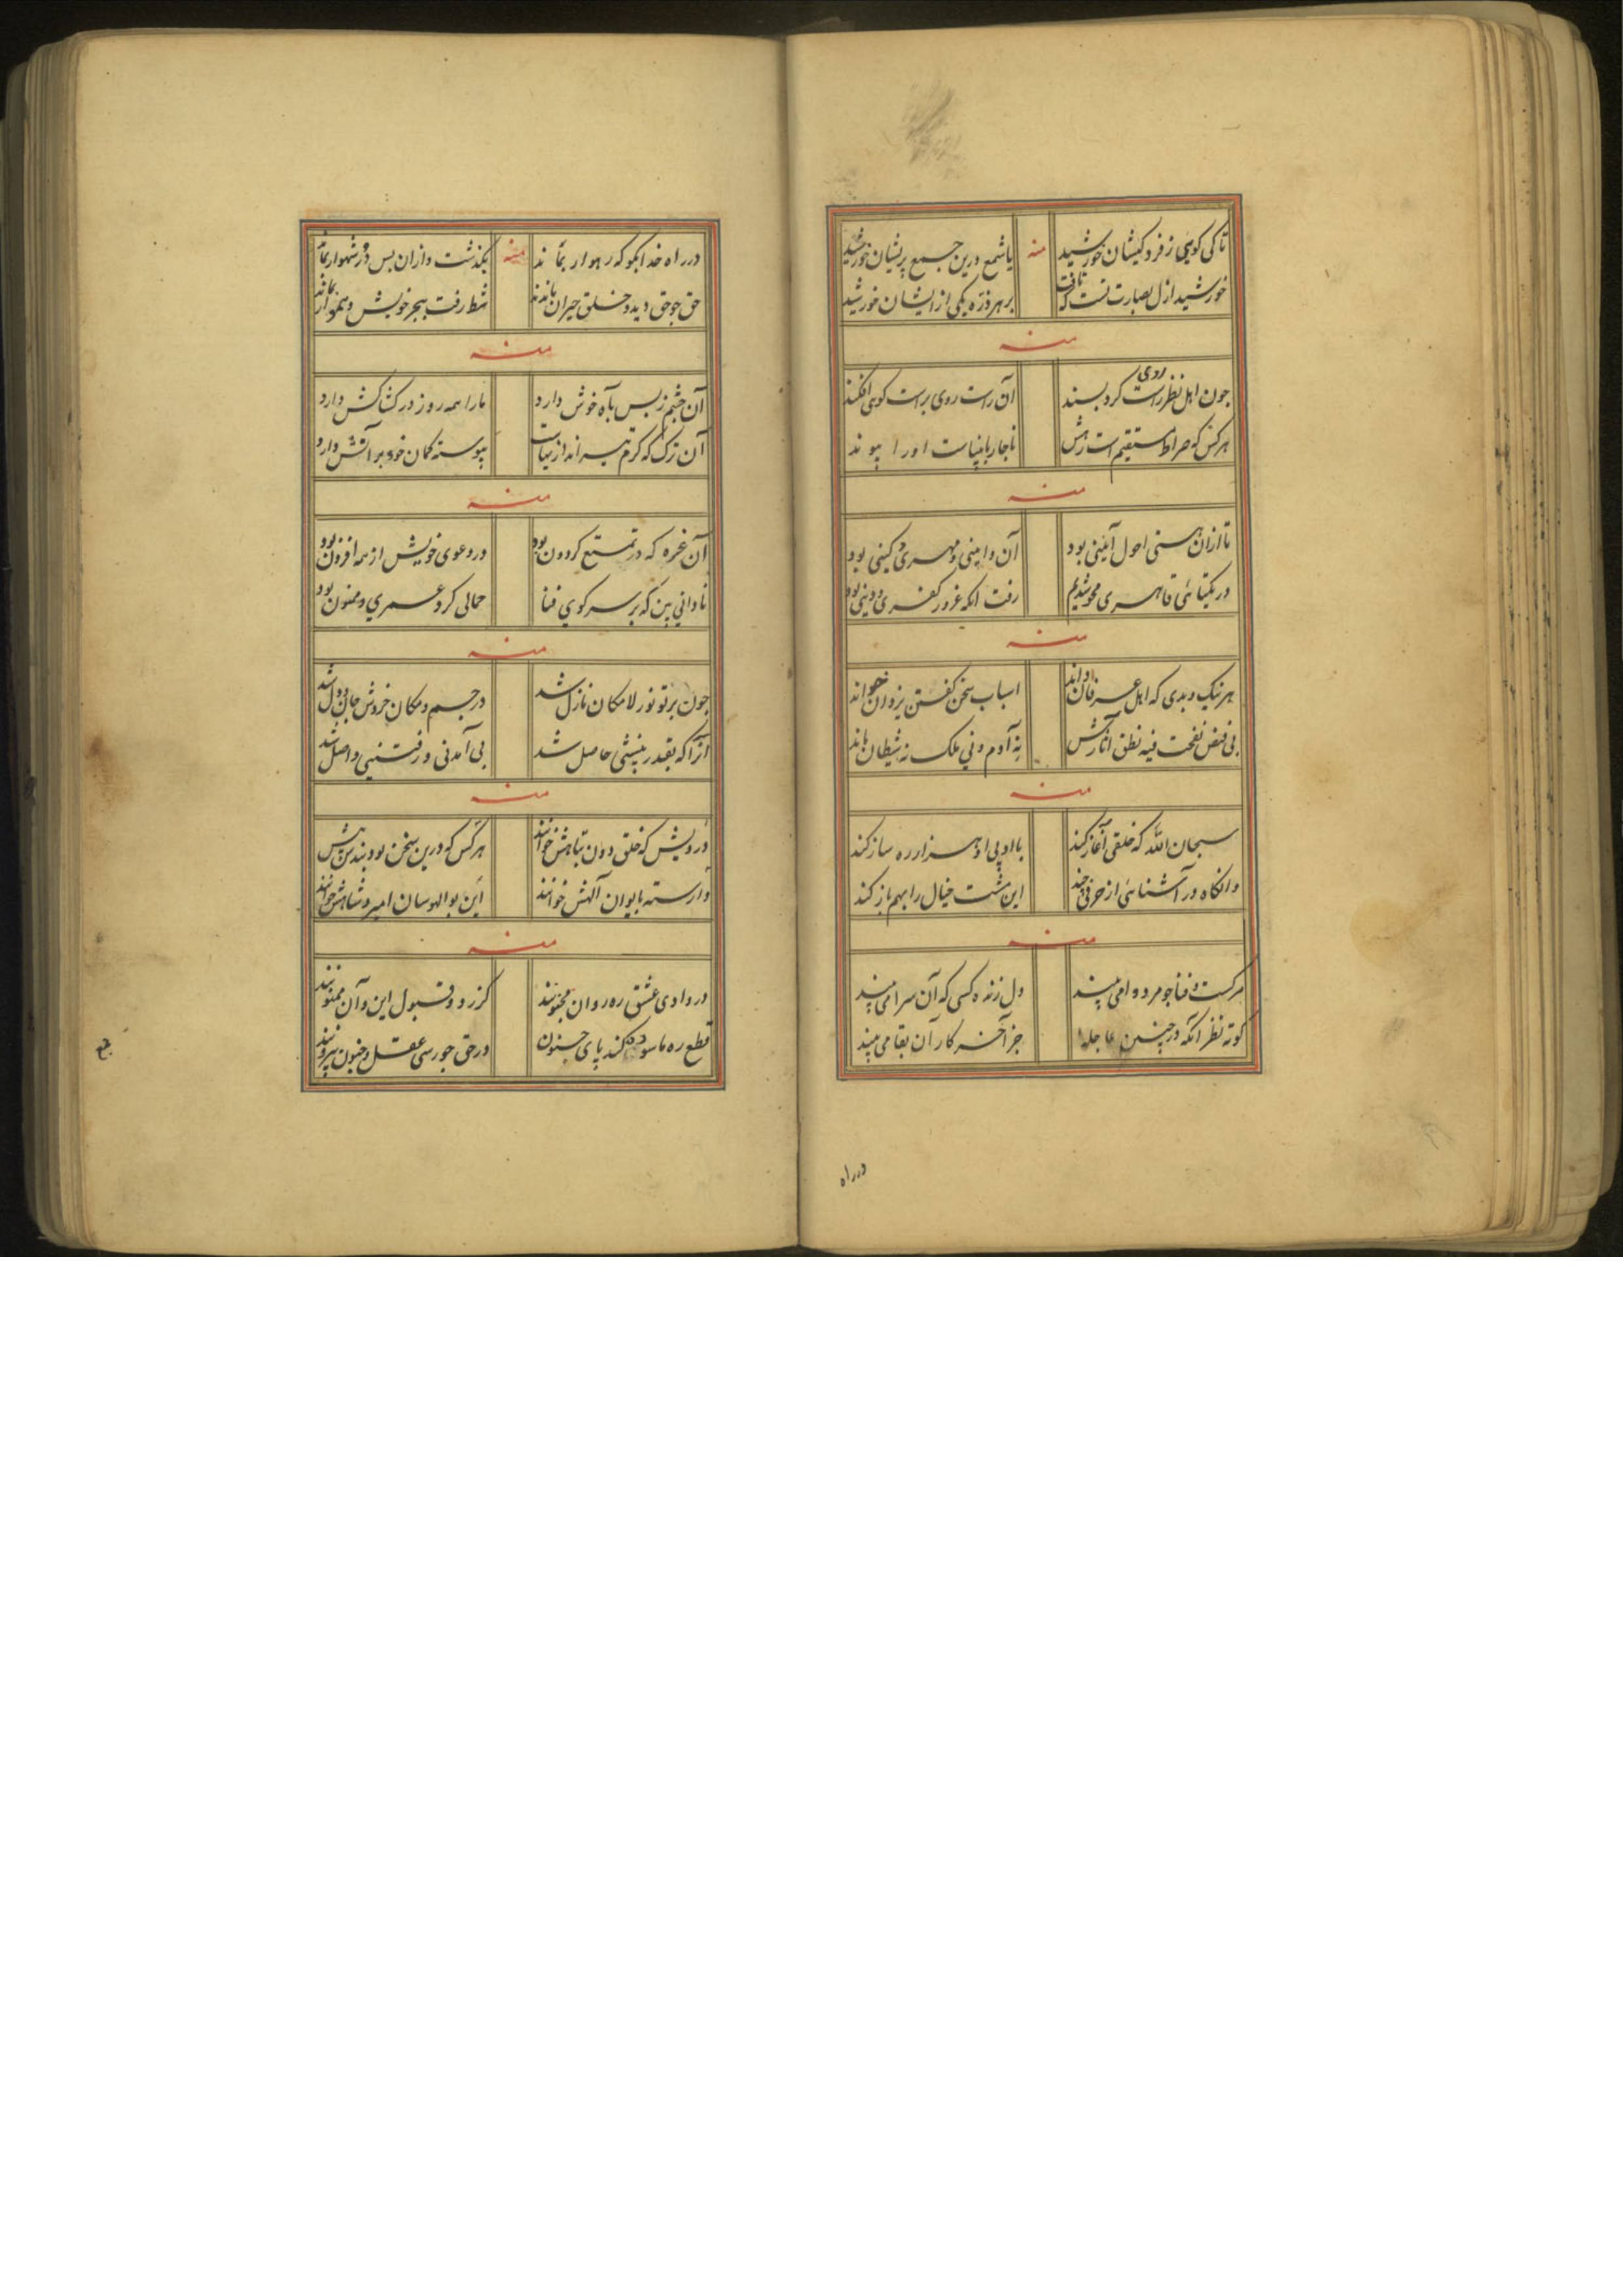 تا کی کویی ز فرد کیشان خورشید منه یا شمع درین جمع پریشان خورشید
خورشید ازل بصارت تست که تافت بر هر ذره یکی از ایشان خورشید
منه
چون اهل نظر راست روی کرد بسند آن راست روی براست کوی افکند
هر کس که صراط مستقیم است رهش ناچار با اوراست پیوند
منه
تا ازان هستی احول آئینی بود آن وامینی و مهری و کینی بود
در یکتائی قاهری محو شدیم رفت انکه غرور کفری و دینی بود
منه
هر نیک و بدی که اهل عرفان داند اسباب سخن کفتن یزدان خواند
بی فیض نفخت فیه نطق آثارش نه آدم و نی ملک نه شیطان ماند
منه
سبحان الله که خلقی آغاز کند با او پی او هزار ره ساز کند
وانکاه در آشنائی از حرفی چند این مشت خیال را بهم باز کند
منه
مرکست و فنا چو مرد وامی بیند دل زنده کسی که آن سرا می بیند
کوته نظر آنکه در چنین جز آخر کار آن بقا می بیند
در راه
در راه خدا بکو که رهوار بماند منه بکذشت وازان بس در شهوار بماند
حق جوحق دید و خلق حیران ماندند شط رفت ببحر خویش و هموار بماند
منه
آن چشم ز بس باآه خوش دارد ما را همه روز در کشاکش دارد
آن ترک که کرم تیر اندازیهاست پیوسته کمان خود بر آتش دارد
منه
آن غره که در تمتع کردون بود در دعوی خویش از همه افزون بود
نادانی بین که بر سر کوی فنا حمالی کرد عمری و ممنون بود
منه
چون پرتو نور لامکان نازل شد در جسم و مکان خروش جان و دل شد
آنرا که بقدر بینشی حاصل شد بی آمدنی و رفتنی واصل شد
منه
درویش که خلق دون تباهش خوانند هر کس که درین سخن بود بندش
وارسته بایوان آلهش خوانند این بوالهوسان امیر و شاهش خوانند
منه
در وادی عشق ره روان مجنونند کز رد و قبول این و آن ممنونند
قطع ره ما سوده کند پای جنون در حق چو رسی عقل و جنون بیرونند